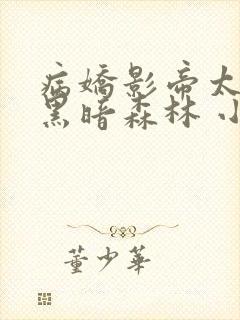 病嬌影帝太
黑暗森林 小
董少華